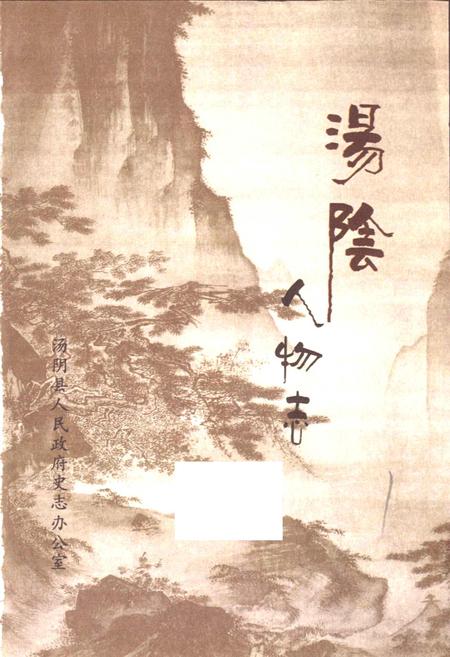 湯陰
人物志
汤阴县人民政府史志办公室